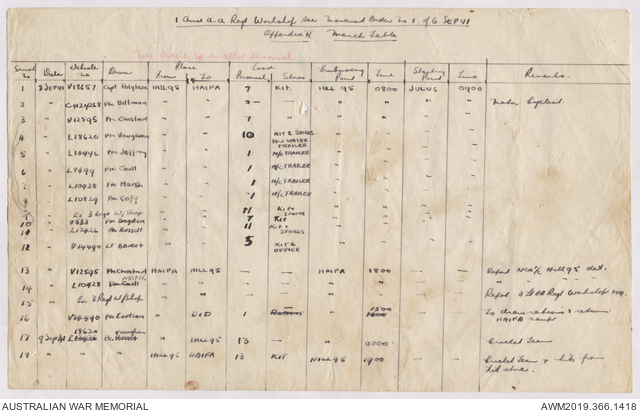 1 Aust A-A Regt Workshop Movement Order No 1. of 6 SEP 41
Appendix March Table
Serial No Date Vehicle No Driver Place From To Load Personnel Stores Embussing Point Time Starting Point Time Remarks
1 8 SEP 41 V18657 Capt HILL 95 HAIFA 7 KIT. HILL 95 0800 JULUS 0900
2 Pte Billman " " " " " " Motor Cyclist.
3 V12595 Pte Chestnut " " 1 " " " "
4 L18620 Pte Vaughan " " 10 KIT & STORES TOW WATER TRAILER " " " "
5 L10446 Pte Jeffrey " " 1 M/C TRAILER " " " "
6 L9499 Pte Coull " " 1 M/C TRAILER " " " "
L10428 Pte Marsh " " 1 M/C TRAILER " " " "
L10829 Pte Goff " " 1 M/C TRAILER " " " "
Ex 3 Regt W/Shop " " 11 Kit & Stores " " " "
10 V533 Pte Brogden " " 7 Kit " " " "
11 Pte Russell " " 11 Kit & STORES " " " "
12 V14490 LT " " 5 KIT & OFFICE " " " "
13 V12595 Pte Chestnut HAIFA HILL 95 — — HAIFA 1500 Report NCO i/c Hill 95 det.
14 L10428 Pte Marsh " " — — " "
15 Ex 3 Regt W/Shop " " " " Report 3 Lt AA Regt Workshop HQ.
16 V14490 Pte Carlson " DID 1 Rations " 1500 To draw rations & return HAIFA camp
17 9 Sep 41 18620 Vaughan " HILL 95 13 — 0800 Cricket Team
18 " " HILL 95 HAIFA 13 KIT HILL 95 1900 Cricket Team & kits from
AUSTRALIAN WAR MEMORIAL
AWM2019.366.1418